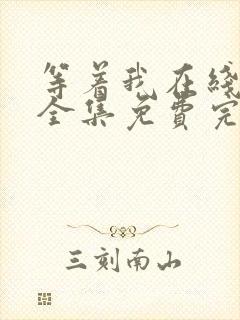 等着我在线
全集免费完
三刻南山